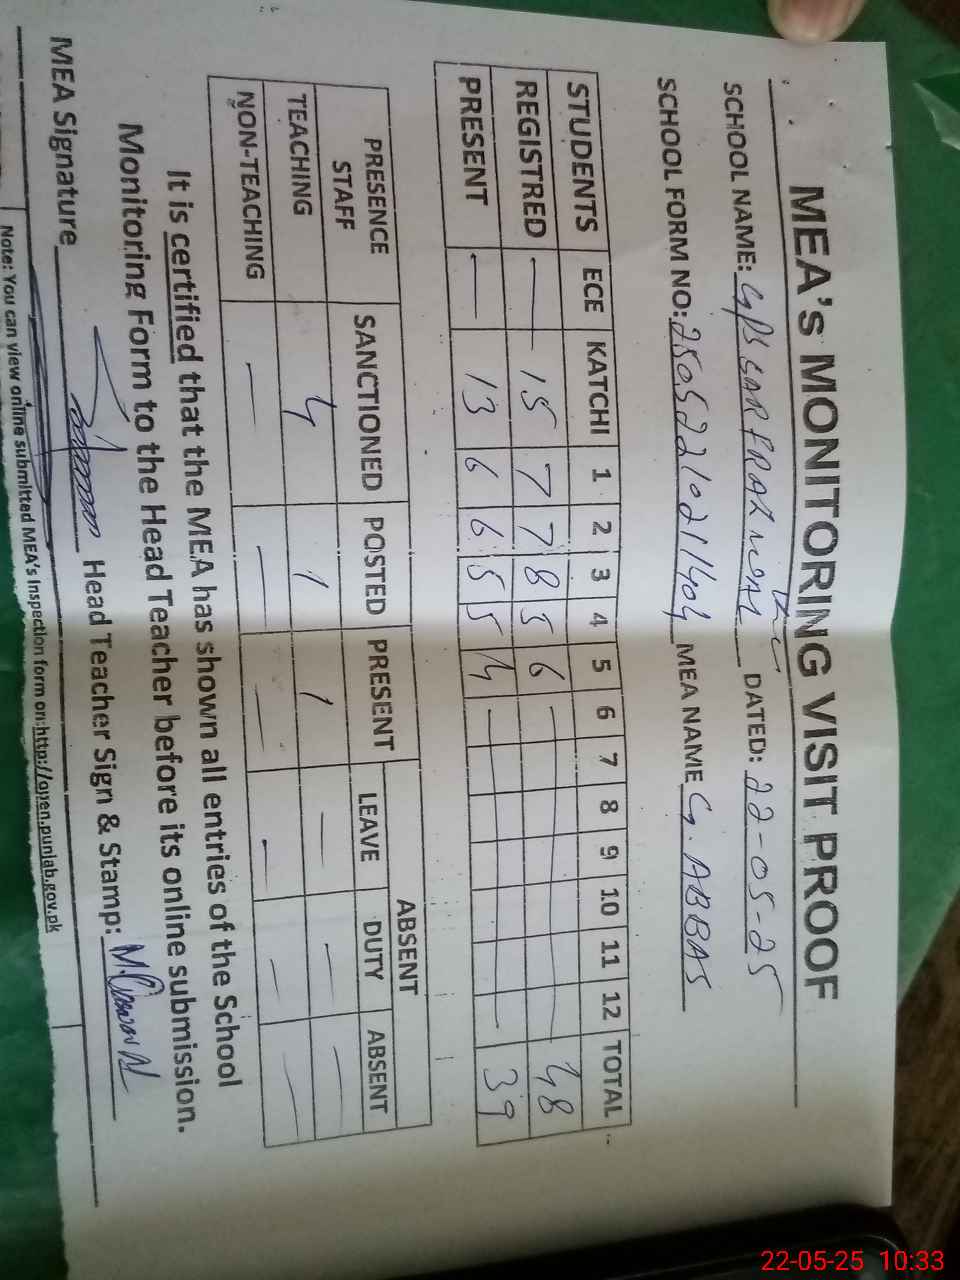 MEA's MONITORING VISIT PROOF
SCHOOL NAME: GPS SARFRAZ DATED: 22-05-25
SCHOOL FORM NO: MEA NAME G. ABBAS
STUDENTS ECE KATCHI 1 2 3 4 5 6 7 8 9 10 11 12 TOTAL
REGISTRED — 15 7 7 8 5 6 — 48
PRESENT — 13 6 6 5 5 4 — 39
PRESENCE STAFF SANCTIONED POSTED PRESENT ABSENT
LEAVE DUTY ABSENT
TEACHING 4 1 1 — — —
NON-TEACHING — — — — — —
It is certified that the MEA has shown all entries of the School
Monitoring Form to the Head Teacher before its online submission.
MEA Signature Head Teacher Sign & Stamp:
Note: You can view online submitted MEA's Inspection form on:http://open.punjab.gov.pk
22-05-25 10:33